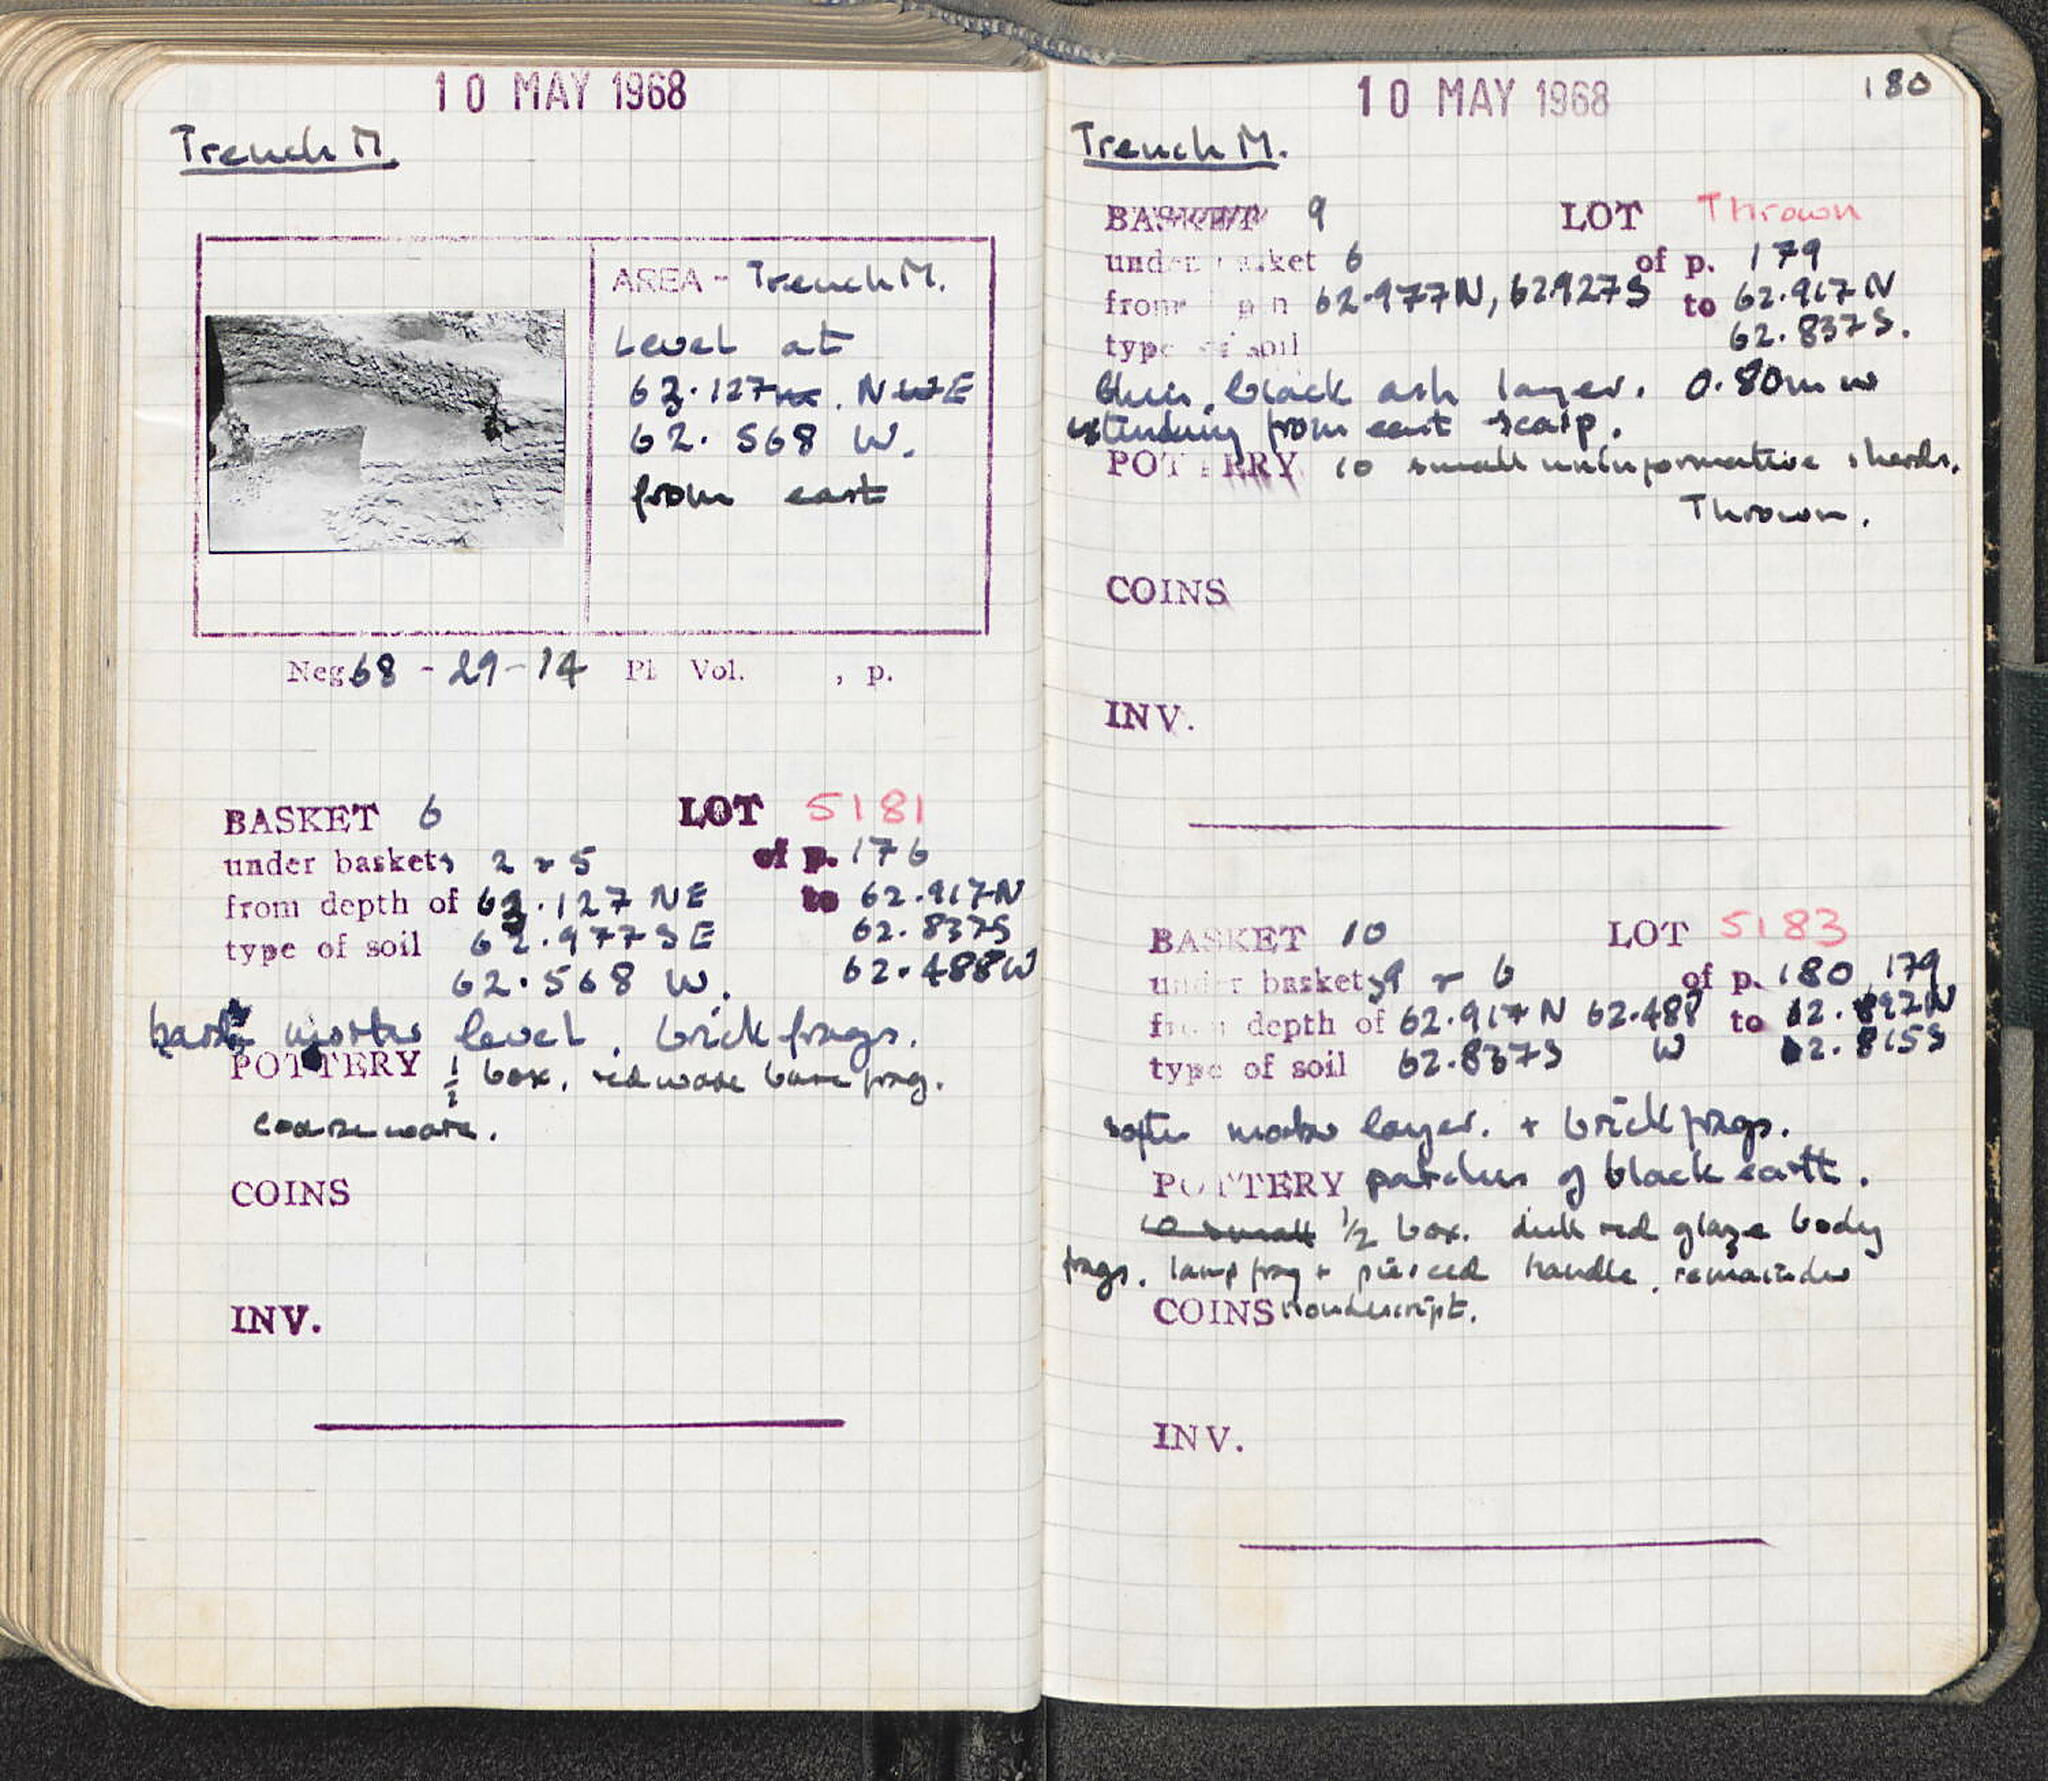 10 MAY 1968
Trench M
AREA - Trench M.
Level at
63.127m. N W E
62.568 W.
from east
Neg 68 - 29-14 Pl Vol. , p.
BASKET 6 LOT 5181
under baskets 2 + 5 of p. 176
from depth of 63.127 NE to 62.917N
type of soil 62.977SE 62.837S
62.568 W. 62.488W
hard mortar level. brick frags.
POTTERY 1/2 box. red ware base frag.
coarse ware.
COINS
INV.
10 MAY 1968 180
Trench M.
BASKET 9 LOT Thrown
under basket 6 of p. 179
from 62.977N, 62.927S to 62.917N
type of soil 62.837S.
thin, black ash layer. 0.80m w
extending from east scarp.
POTTERY 10 small uninformative sherds.
Thrown.
COINS
INV.
BASKET 10 LOT 5183
under baskets 9 + 6 of p. 180 179
from depth of 62.917N 62.488 to 62.892N
type of soil 62.837S W 62.815S
softer mortar layer. + brick frags.
POTTERY patches of black earth.
10 small 1/2 box. dull red glaze body
frags. lamp frag + pierced handle. remainder
COINS nondescript.
INV.